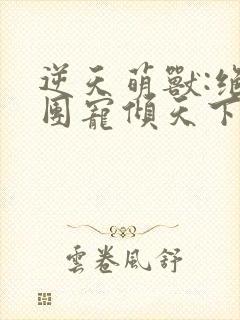 逆天萌獸:絕
團寵傾天下
雲卷風舒